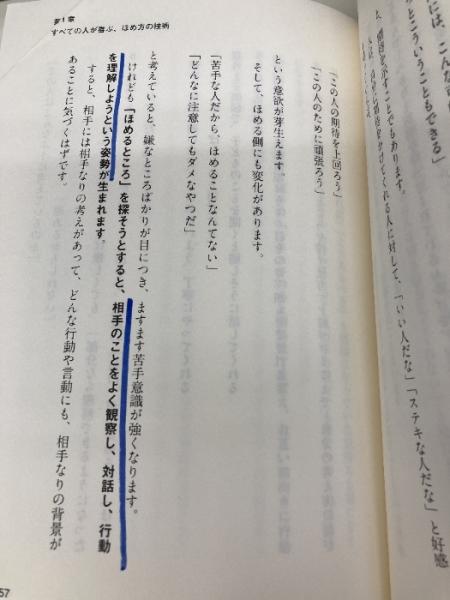 には、こんな
とこういうこともできる」
開きを示すことでもあります。
かけてくれる人に対して、「いい人だな」「ステキな人だな」と好感
第1章
すべての人が喜ぶ、ほめ方の技術
「この人の期待を上回ろう」
「この人のために頑張ろう」
という意欲が芽生えます。
そして、ほめる側にも変化があります。
「苦手な人だから、ほめることなんてない」
「どんなに注意してもダメなやつだ」
と考えていると、嫌なところばかりが目につき、ますます苦手意識が強くなります。
けれども「ほめるところ」を探そうとすると、相手のことをよく観察し、対話し、行動
を理解しようという姿勢が生まれます。
すると、相手には相手なりの考えがあって、どんな行動や言動にも、相手なりの背景が
あることに気づくはずです。
57